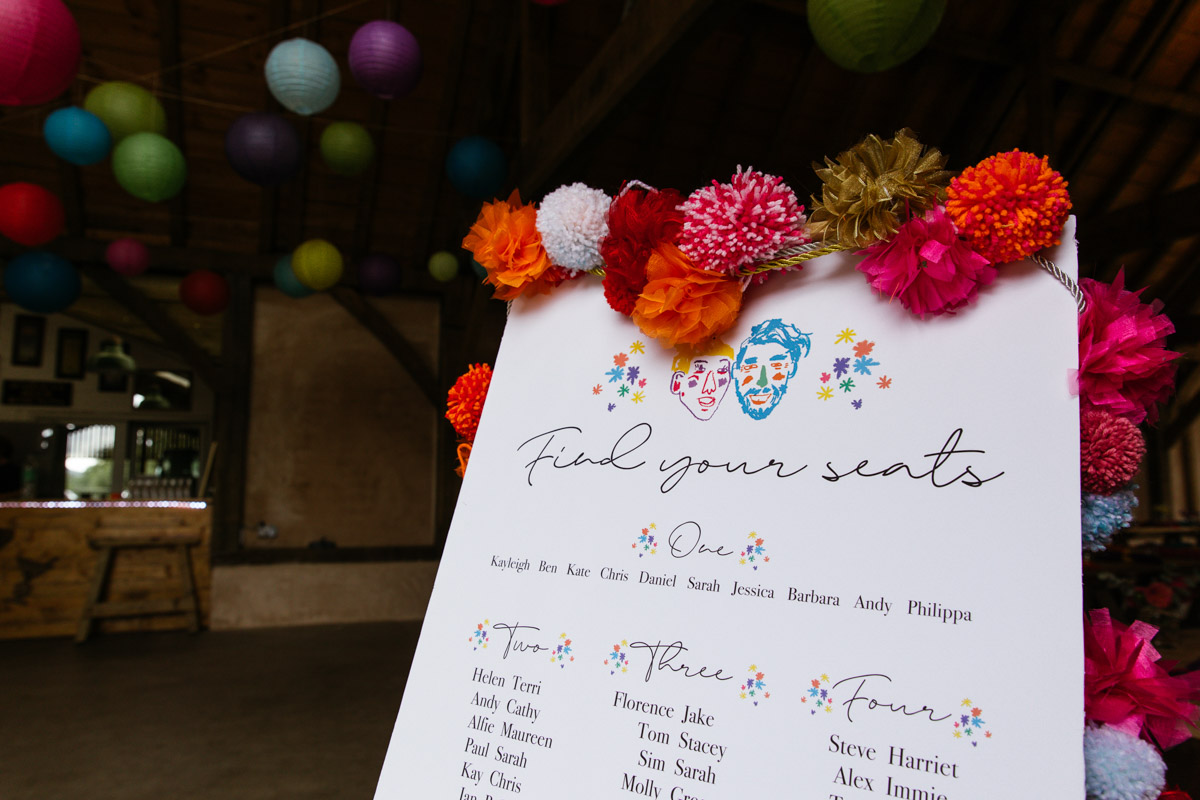 Find your seats
One
Kayleigh Ben Kate Chris Daniel Sarah Jessica Barbara Andy Philippa
Two
Helen Terri
Andy Cathy
Alfie Maureen
Paul Sarah
Kay Chris
Three
Florence Jake
Tom Stacey
Sim Sarah
Molly
Four
Steve Harriet
Alex Immie